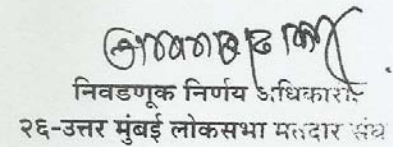 निवडणूक निर्णय अधिकारी
२६-उत्तर मुंबई लोकसभा मतदार संघ